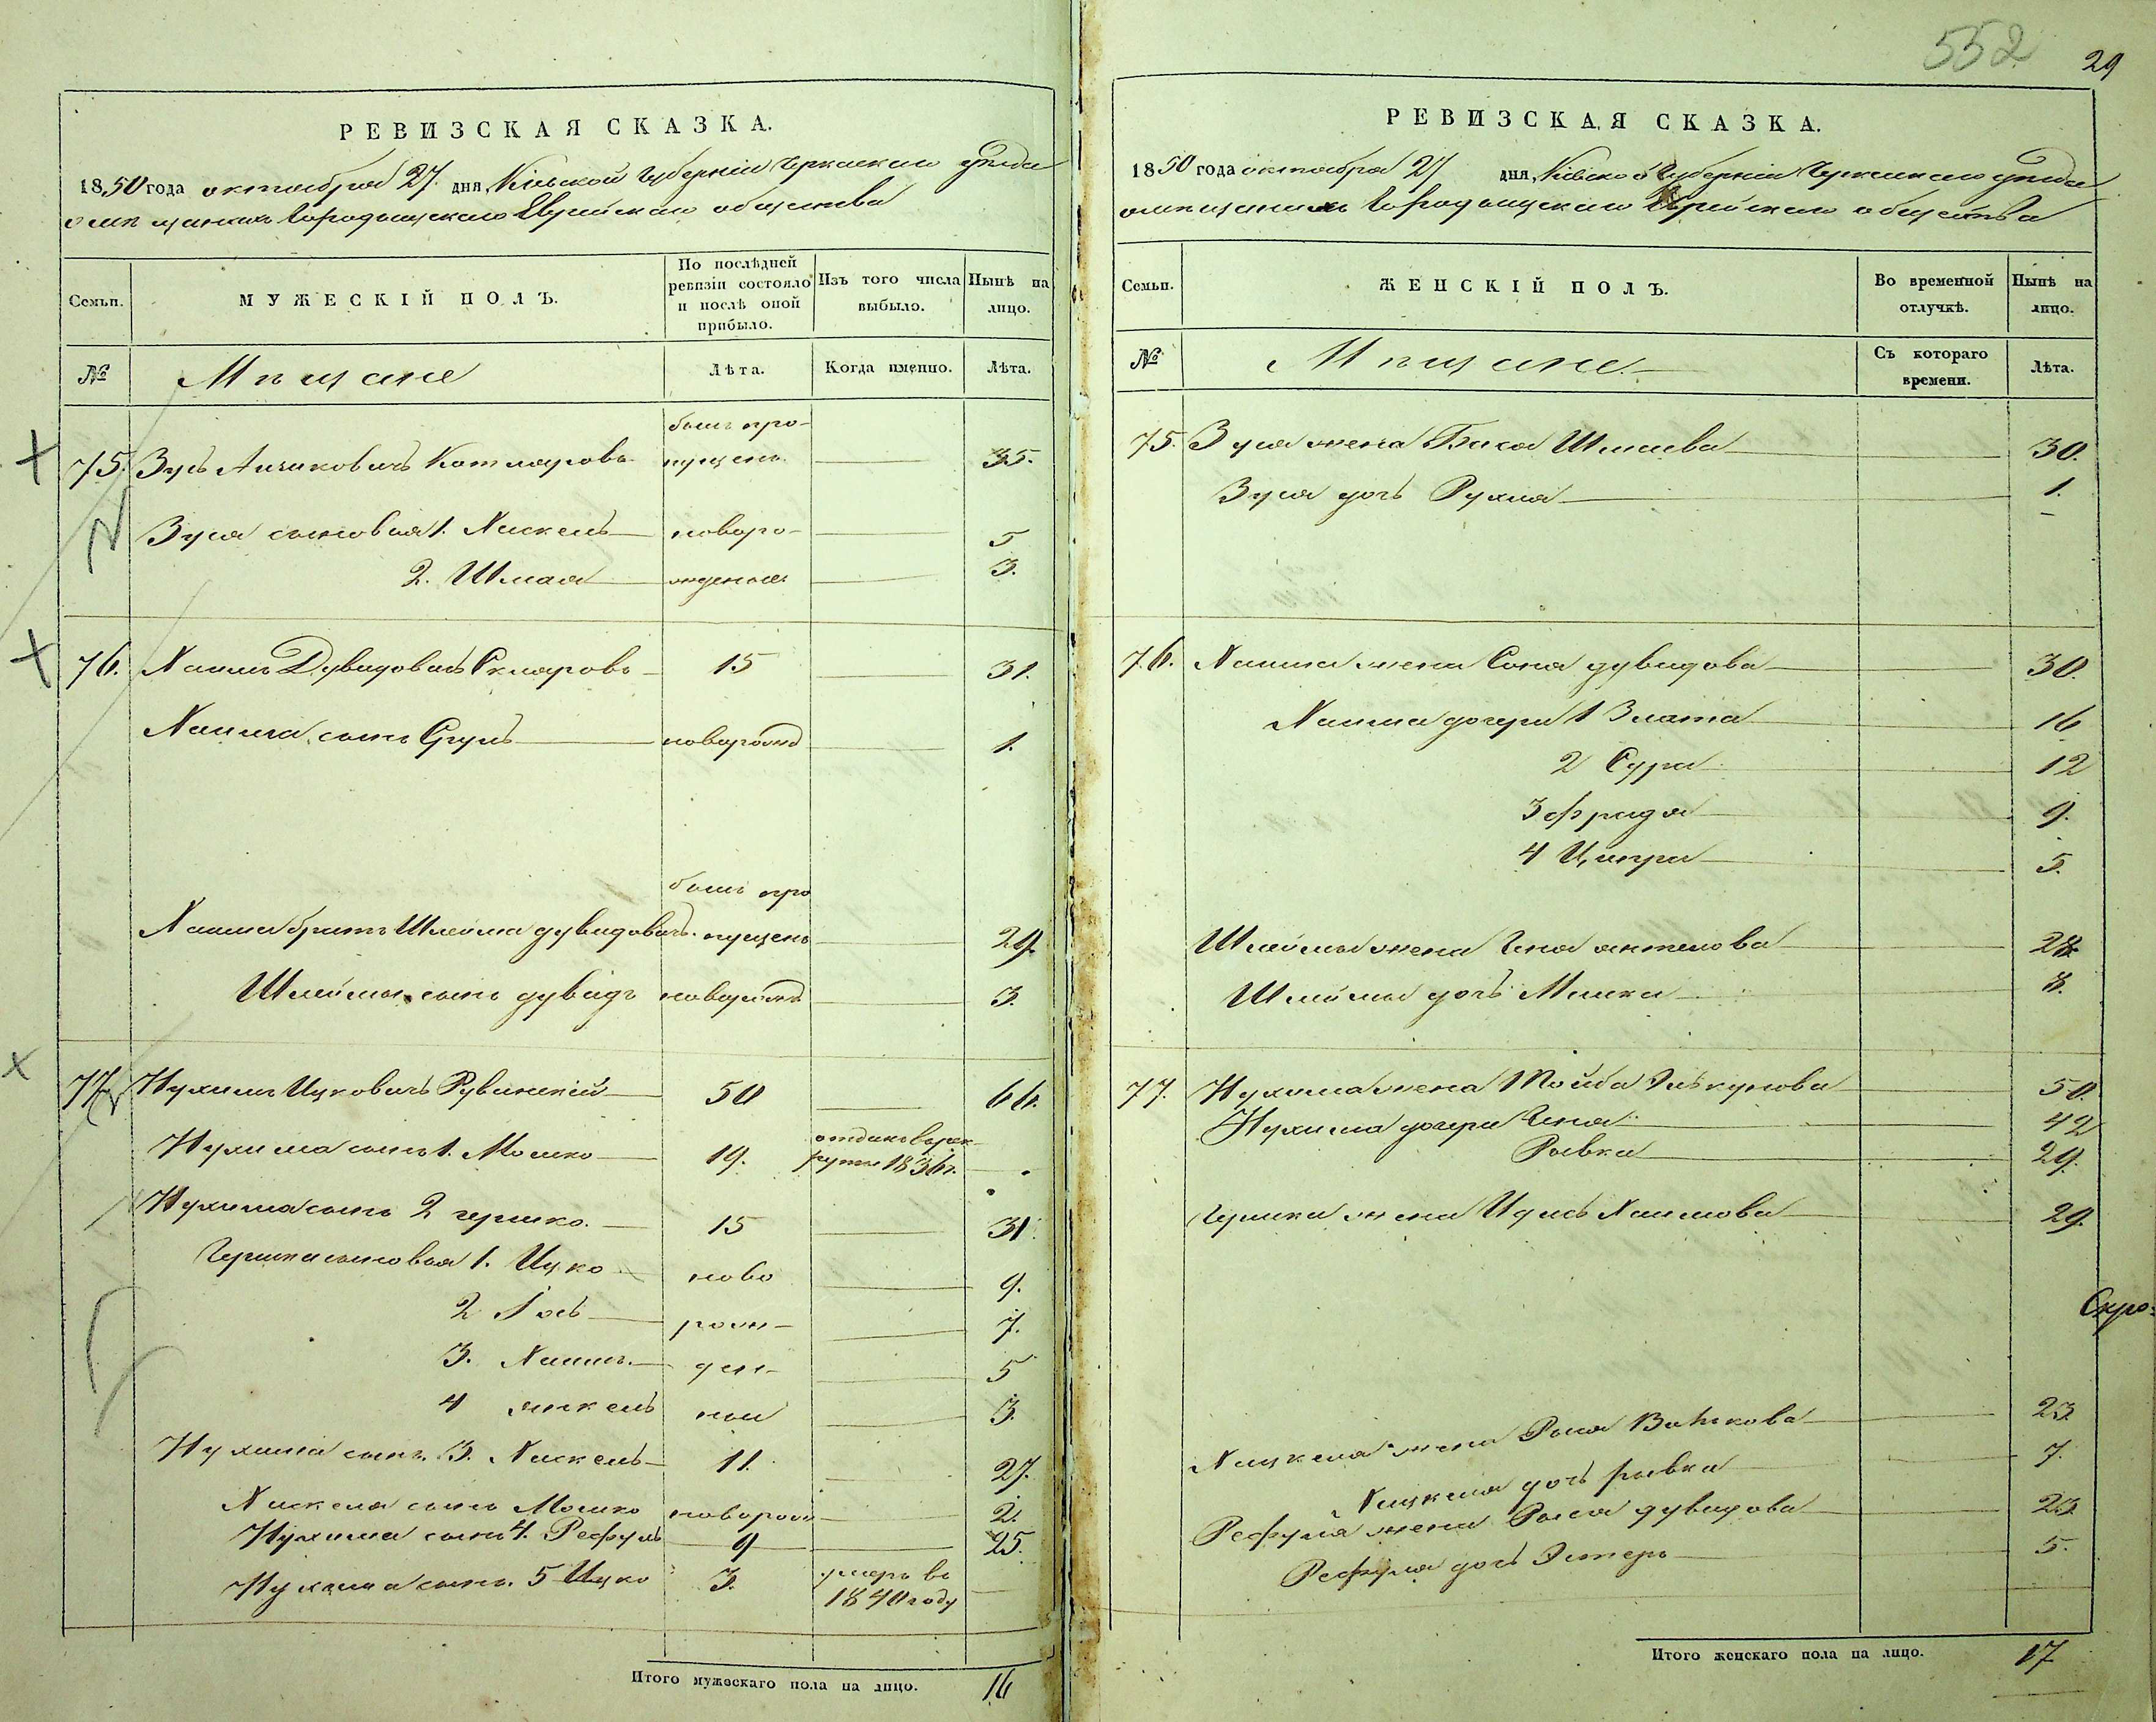 552
29
РЕВИЗСКАЯ СКАЗКА.
1850 года октября 27. дня, Кіевской Губерніи Черкаскаго уѣзда
о мѣщанахъ Городыщскаго Еврейскаго общества
Семьи.
МУЖЕСКІЙ ПОЛЪ.
По послѣдней ревизіи состояло и послѣ оной прибыло.
Изъ того числа выбыло.
Нынѣ на лицо.
№
Мѣщане
Лѣта.
Когда именно.
Лѣта.
75. Зусь Аицковичъ Котляровъ былъ пропущенъ 35.
Зуся сыновья 1. Хаскель новоро- 5
2. Шмая жденые. 3.
76. Хаимъ Дувидовичъ Скляровъ 15 31.
Хаима сынъ Сруль новорожд 1.
Хаима братъ Шлейма дувидовичъ. былъ пропущенъ 29.
Шлеймы сынъ дувидъ новорожд 3.
77 Нухимъ Ицковичъ Рувинскій 50 66.
Нухима сынъ 1. Мошко 19. отданъ въ рекруты 1836 г.
Нухима сынъ 2 гершко. 15 31.
Гершка сыновья 1. Ицко ново 9.
2 Іось рож- 7.
3. Хаимъ. ден- 5
4 янкель ныи 3.
Нухима сынъ. 3. Хаскель 11. 27.
Хаскеля сынъ Мошко новорож 2.
Нухима сынъ 4. Рефуль 9 25.
Нухима сынъ. 5 Ицко 3. умеръ въ 1840 году
Итого мужескаго пола на лицо. 16
РЕВИЗСКАЯ СКАЗКА.
1850 года октября 27 дня, Кіевской Губерніи Черкаскаго уѣзда
о мѣщанахъ Городыщскаго Еврейскаго общества
Семьи.
ЖЕНСКІЙ ПОЛЪ.
Во временной отлучкѣ.
Нынѣ на лицо.
№
Мѣщане.
Съ котораго времени.
Лѣта.
75. Зуся жена Бася Шмаева 30.
Зуся дочь Рухля 1.
76. Хаима жена Соня дувидова 30.
Хаима дочери 1 Злата 16
2 Сура 12
3 фрида 9.
4 Ципра 5.
Шлеймы жена Гена антелова 28.
Шлеймы дочь Малка 8.
77. Нухима жена Тойба 50.
Нухима дочери Гена 42
Рывка 29.
Гершка жена Идись Хаимова 29.
Скро-
Хацкеля жена Рыся Вольскова 23
Хацкеля дочь рывка 7.
Рефуля жена Рыся дувидова 23
Рефуля дочь Эстеръ 5.
Итого женскаго пола на лицо. 17